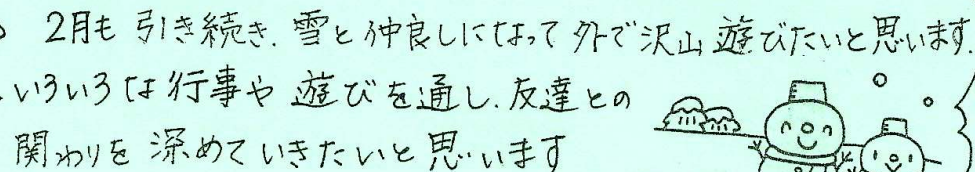 2月も 引き続き、雪と仲良しになって 外で沢山 遊びたいと思います。
いろいろな行事や 遊びを通し、友達との
関わりを 深めていきたいと思います